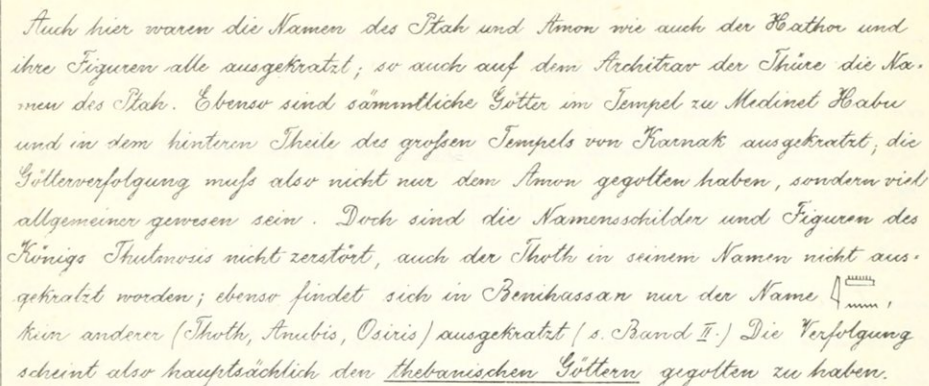 Auch hier waren die Namen des Ptah und Amon wie auch der Hathor und
ihre Figuren alle ausgekratzt; so auch auf dem Architrav der Thüre die Na-
men des Ptah. Ebenso sind sämmtliche Götter im Tempel zu Medinet Habu
und in dem hinteren Theile des großen Tempels von Karnak ausgekratzt; die
Götterverfolgung muß also nicht nur dem Amon gegolten haben, sondern viel
allgemeiner gewesen sein. Doch sind die Namensschilder und Figuren des
Königs Thutmosis nicht zerstört, auch der Thoth in seinem Namen nicht aus-
gekratzt worden; ebenso findet sich in Benihassan nur der Name 𓇋𓏠𓈖,
kein anderer (Thoth, Anubis, Osiris) ausgekratzt (s. Band II.) Die Verfolgung
scheint also hauptsächlich den thebanischen Göttern gegolten zu haben.